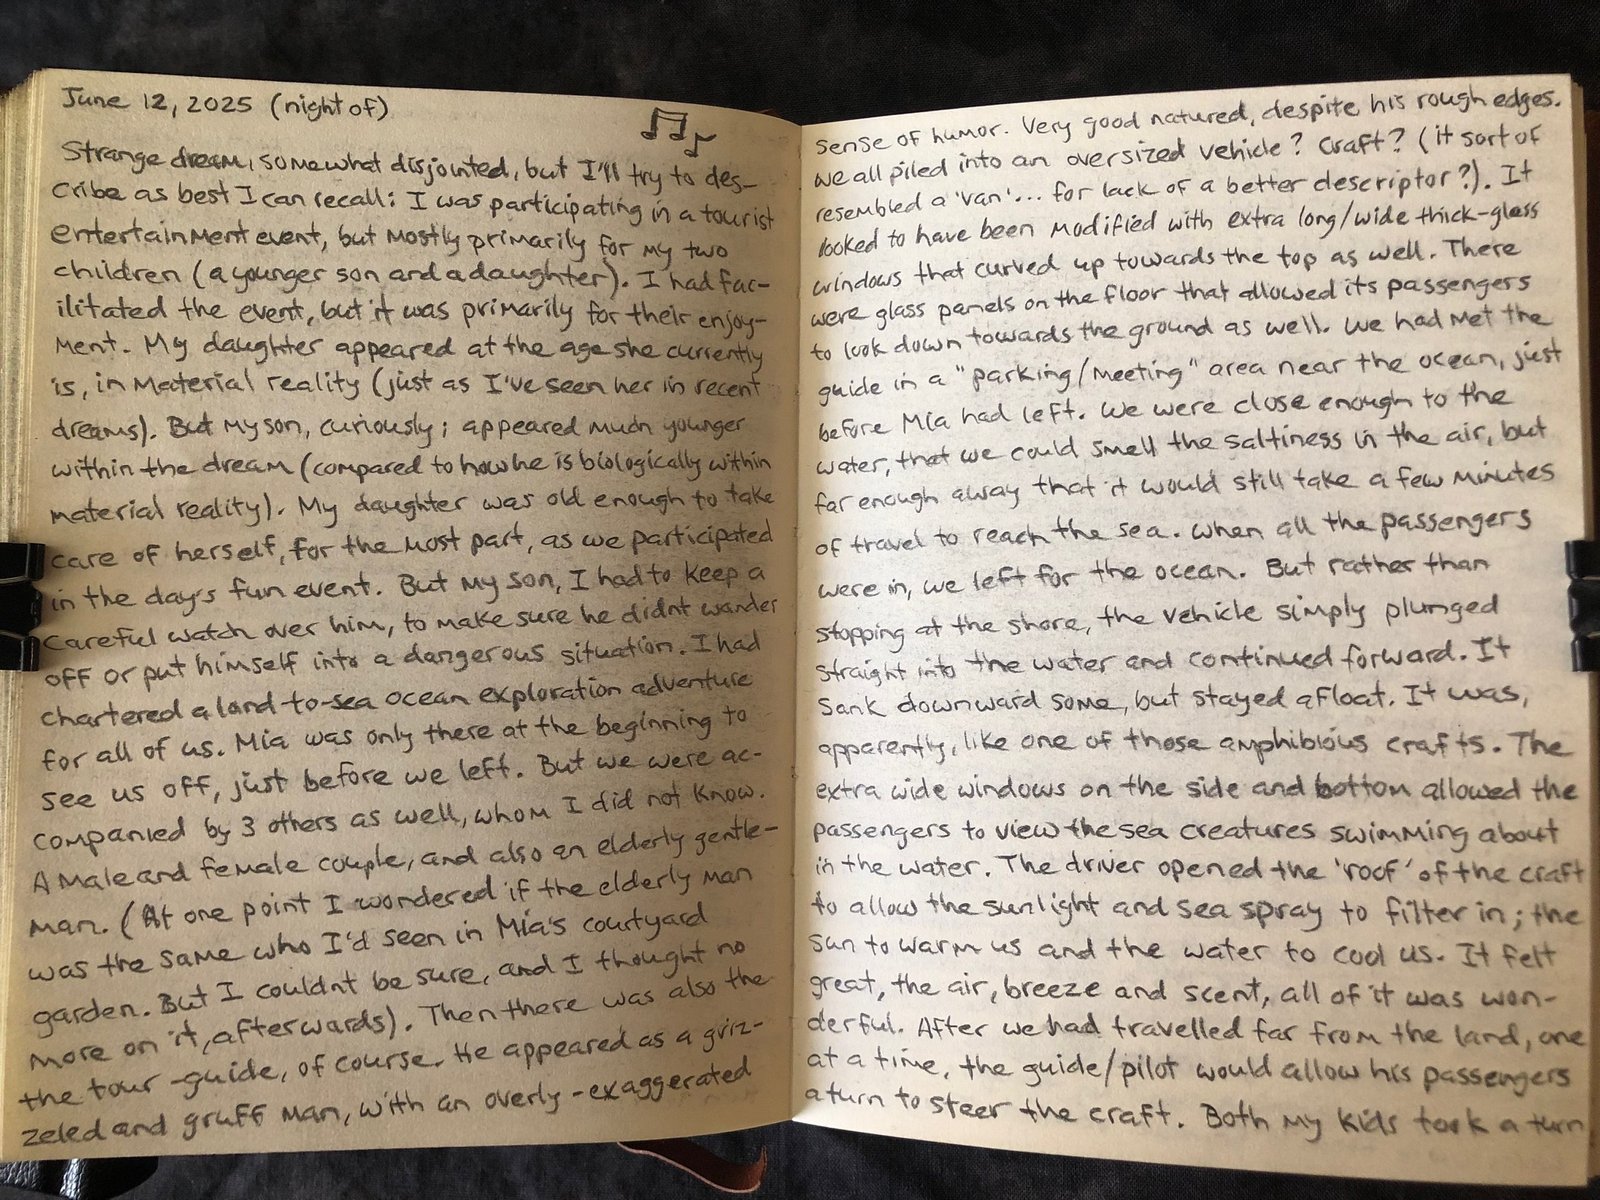 June 12, 2025 (night of)
Strange dream, somewhat disjointed, but I'll try to des-
cribe as best I can recall: I was participating in a tourist
entertainment event, but mostly primarily for my two
children (a younger son and a daughter). I had fac-
ilitated the event, but it was primarily for their enjoy-
ment. My daughter appeared at the age she currently
is, in material reality (just as I've seen her in recent
dreams). But my son, curiously; appeared much younger
within the dream (compared to how he is biologically within
material reality). My daughter was old enough to take
care of herself, for the most part, as we participated
in the day's fun event. But my son, I had to keep a
careful watch over him, to make sure he didnt wander
off or put himself into a dangerous situation. I had
chartered a land-to-sea ocean exploration adventure
for all of us. Mia was only there at the beginning to
see us off, just before we left. But we were ac-
companied by 3 others as well, whom I did not know.
A male and female couple, and also an elderly gentle-
man. (At one point I wondered if the elderly man
was the same who I'd seen in Mia's courtyard
garden. But I couldnt be sure, and I thought no
more on it, afterwards). Then there was also the
the tour-guide, of course. He appeared as a griz-
zeled and gruff man, with an overly-exaggerated
sense of humor. Very good natured, despite his rough edges.
we all piled into an oversized vehicle? craft? (it sort of
resembled a 'van'... for lack of a better descriptor?). It
looked to have been modified with extra long/wide thick-glass
windows that curved up towards the top as well. There
were glass panels on the floor that allowed its passengers
to look down towards the ground as well. We had met the
guide in a "parking/meeting" area near the ocean, just
before Mia had left. We were close enough to the
water, that we could smell the saltiness in the air, but
far enough away that it would still take a few minutes
of travel to reach the sea. When all the passengers
were in, we left for the ocean. But rather than
stopping at the shore, the vehicle simply plunged
straight into the water and continued forward. It
sank downward some, but stayed afloat. It was,
apparently, like one of those amphibious crafts. The
extra wide windows on the side and bottom allowed the
passengers to view the sea creatures swimming about
in the water. The driver opened the 'roof' of the craft
to allow the sunlight and sea spray to filter in; the
sun to warm us and the water to cool us. It felt
great, the air, breeze and scent, all of it was won-
derful. After we had travelled far from the land, one
at a time, the guide/pilot would allow his passengers
a turn to steer the craft. Both my kids took a turn